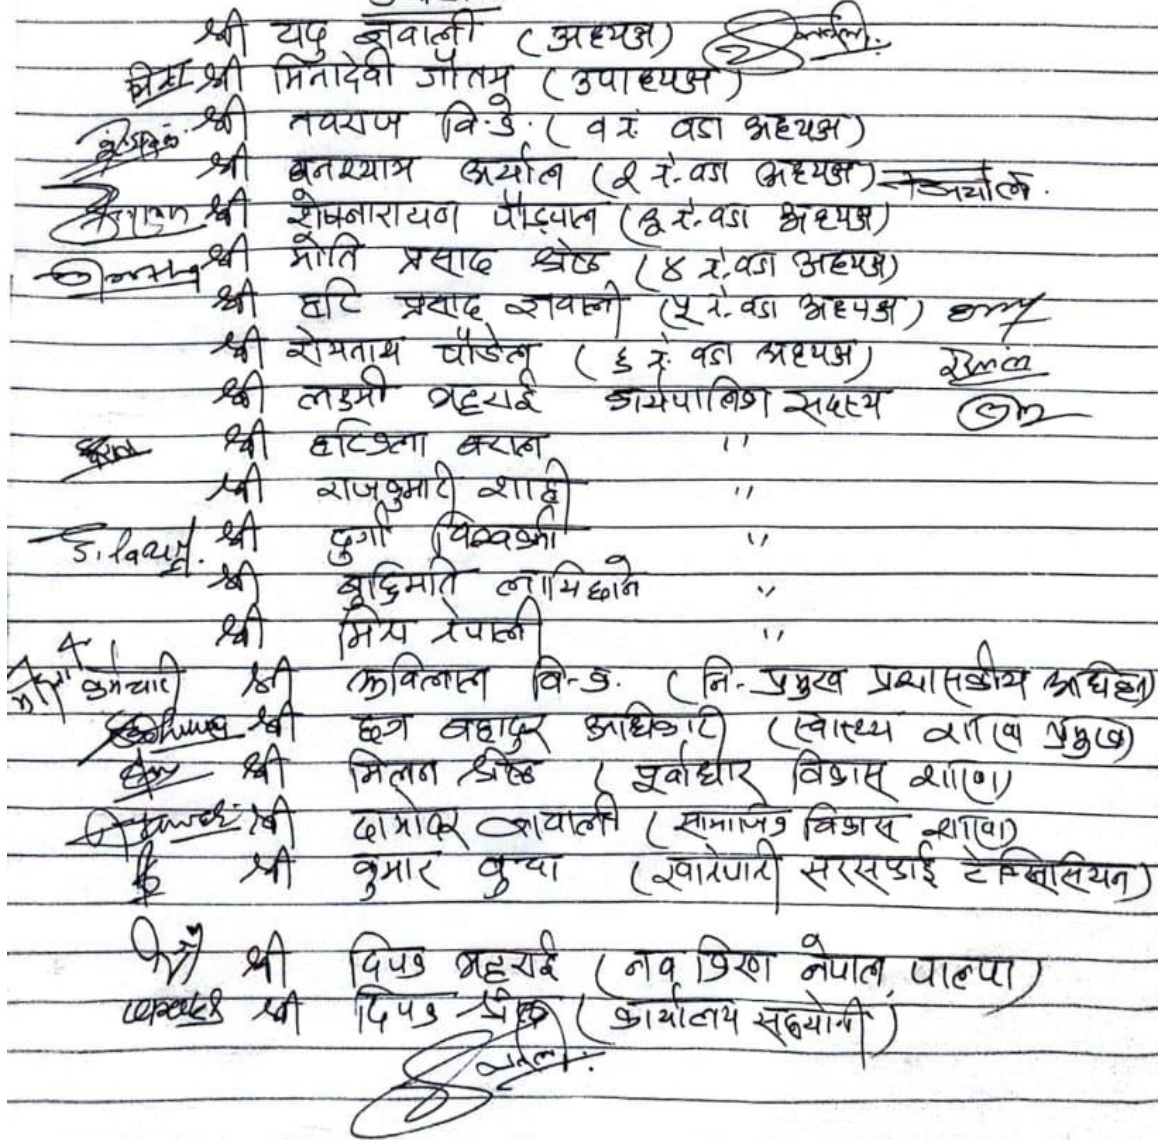 श्री यदु ज्ञवाली (अध्यक्ष)
श्री मिनादेवी गौतम (उपाध्यक्ष)
श्री नवराज वि.क. (१ नं. वडा अध्यक्ष)
श्री घनश्याम अर्याल (२ नं. वडा अध्यक्ष)
श्री शेषनारायण पौड्याल (३ नं. वडा अध्यक्ष)
श्री मोति प्रसाद श्रेष्ठ (४ नं. वडा अध्यक्ष)
श्री हरि प्रसाद ज्ञवाली (५ नं. वडा अध्यक्ष)
श्री रोमनाथ पौडेल (६ नं. वडा अध्यक्ष)
श्री लक्ष्मी भट्टराई कार्यपालिका सदस्य
श्री हरिकला बराल "
श्री राजकुमारी शाही "
श्री दुर्गा विश्वकर्मा "
श्री बुद्धिमति लामिछाने "
श्री मित्र नेपाली "
कर्मचारी श्री कविलाल वि.क. (नि. प्रमुख प्रशासकीय अधिकृत)
श्री छत्र बहादुर अधिकारी (स्वास्थ्य शाखा प्रमुख)
श्री मिलन श्रेष्ठ (पूर्वाधार विकास शाखा)
श्री दामोदर ज्ञवाली (सामाजिक विकास शाखा)
श्री कुमार (खानेपानी सरसफाई टेक्निसियन)
श्री दिपक भट्टराई (नव किरण नेपाल, पाल्पा)
श्री दिपक श्रेष्ठ (कार्यालय सहयोगी)